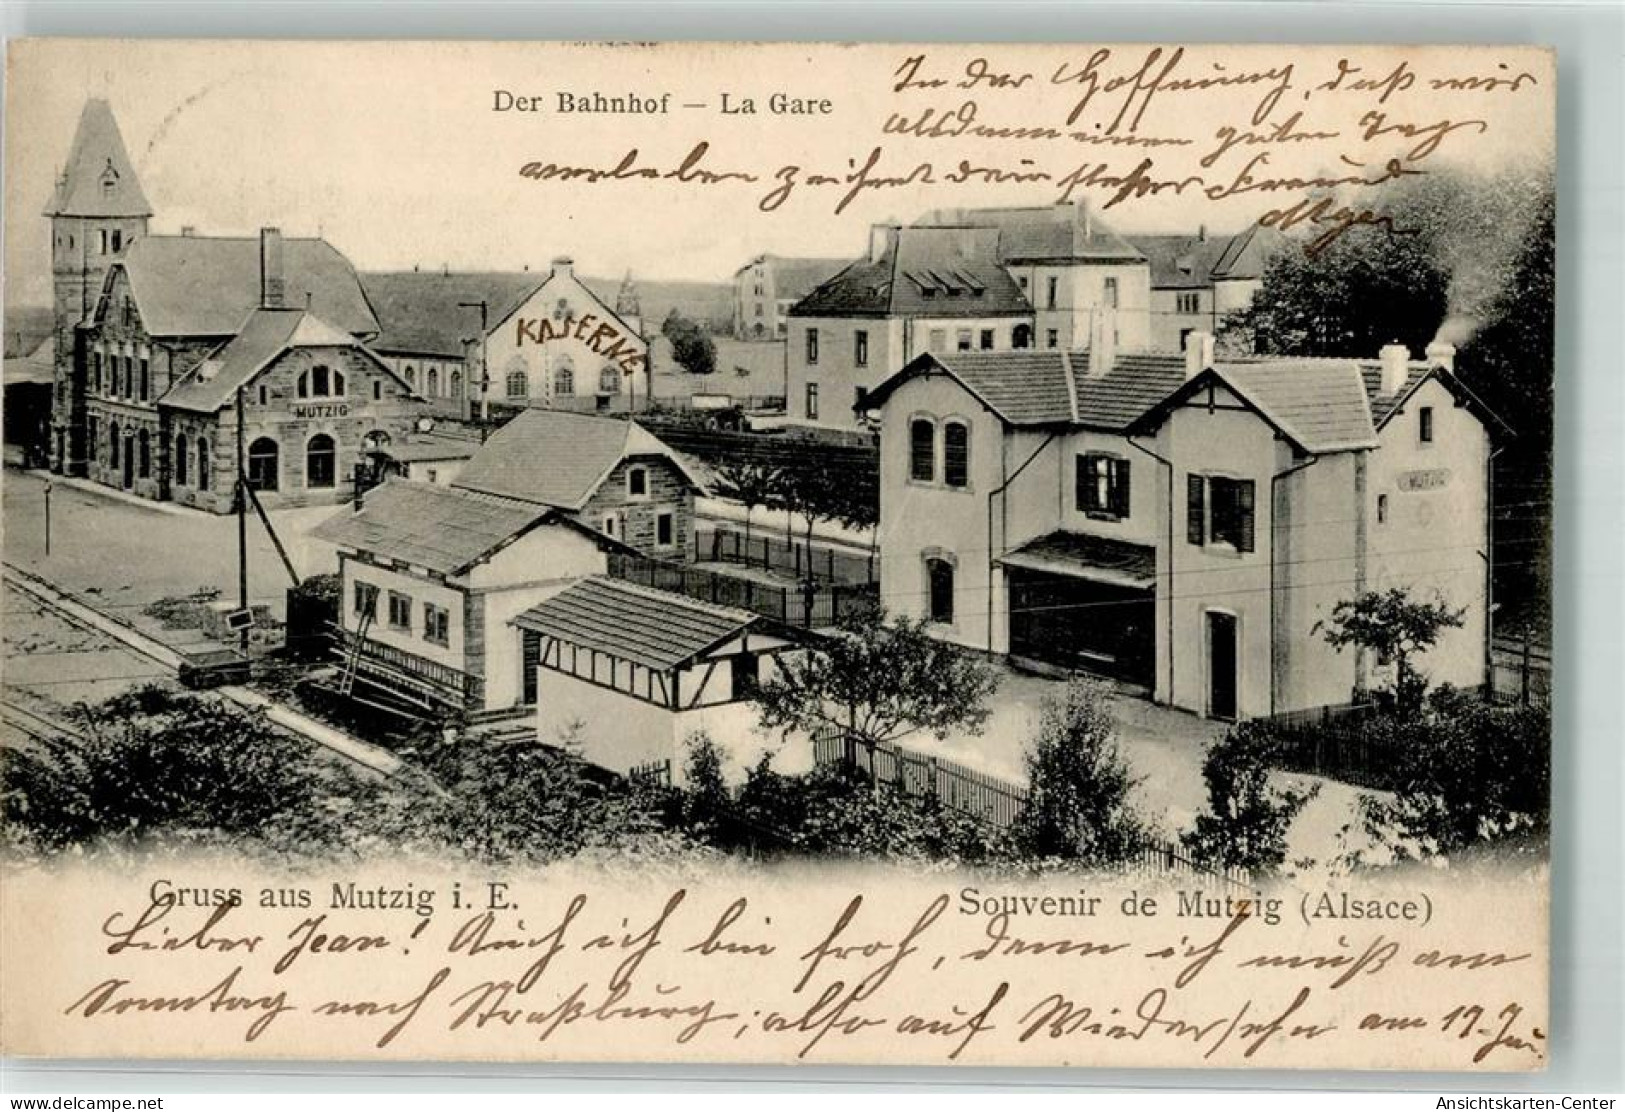 Der Bahnhof – La Gare
In der Hoffnung, daß wir
alsdann einen guten Tag
verleben zeichnet dein steter Freund
KASERNE
MUTZIG
MUTZIG
Gruss aus Mutzig i. E.
Souvenir de Mutzig (Alsace)
Lieber Jean! Auch ich bin froh, denn ich muß am
Sonntag nach Straßburg; also auf Wiedersehn am 17.
delcampe.net
Ansichtskarten-Center